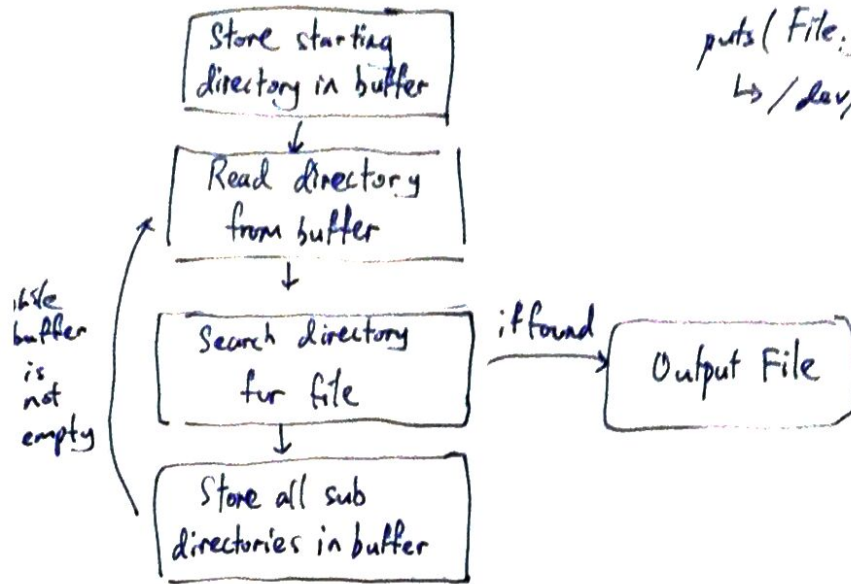 Store starting
directory in buffer
puts( File:
↳ /dev/
Read directory
from buffer
while
buffer
is
not
empty
Search directory
for file
if found
Output File
Store all sub
directories in buffer